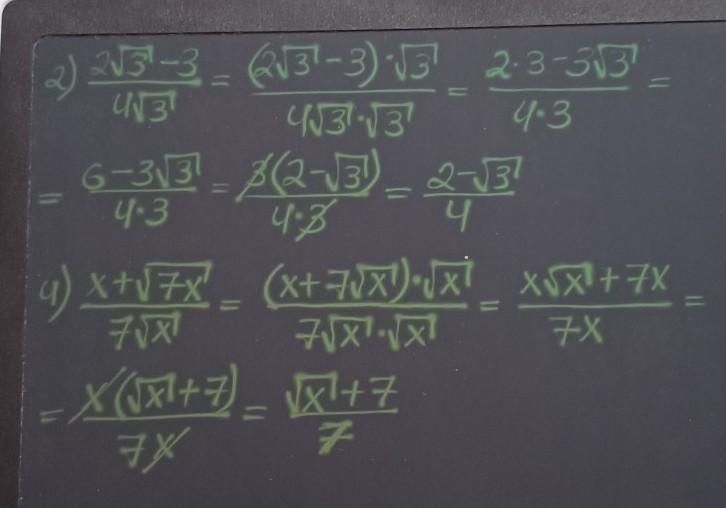 2) (2√3 - 3)/(4√3) = ((2√3 - 3)·√3)/(4√3·√3) = (2·3 - 3√3)/(4·3) =
= (6 - 3√3)/(4·3) = (3(2 - √3))/(4·3) = (2 - √3)/4
4) (x + √(7x))/(7√x) = ((x + 7√x)·√x)/(7√x·√x) = (x√x + 7x)/(7x) =
= (x(√x + 7))/(7x) = (√x + 7)/7